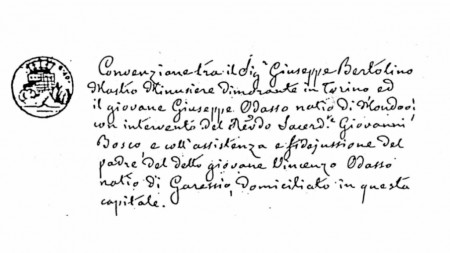 Convenzione tra il Sigr Giuseppe Bertolino
Mastro Minusiere dimorante in Torino ed
il giovane Giuseppe Odasso natio di Mondovì
con intervento del Revdo Sacerde Giovanni
Bosco e coll'assistenza e fidejussione del
padre del detto giovane Vincenzo Odasso
natio di Garessio, domiciliato in questa
capitale.